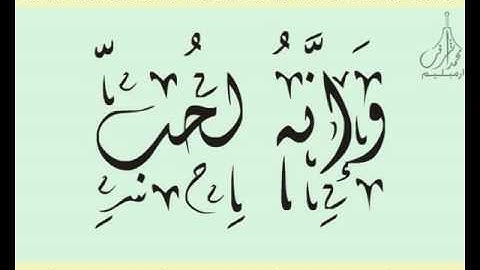 وَإِنَّهُ لِحُبِّ